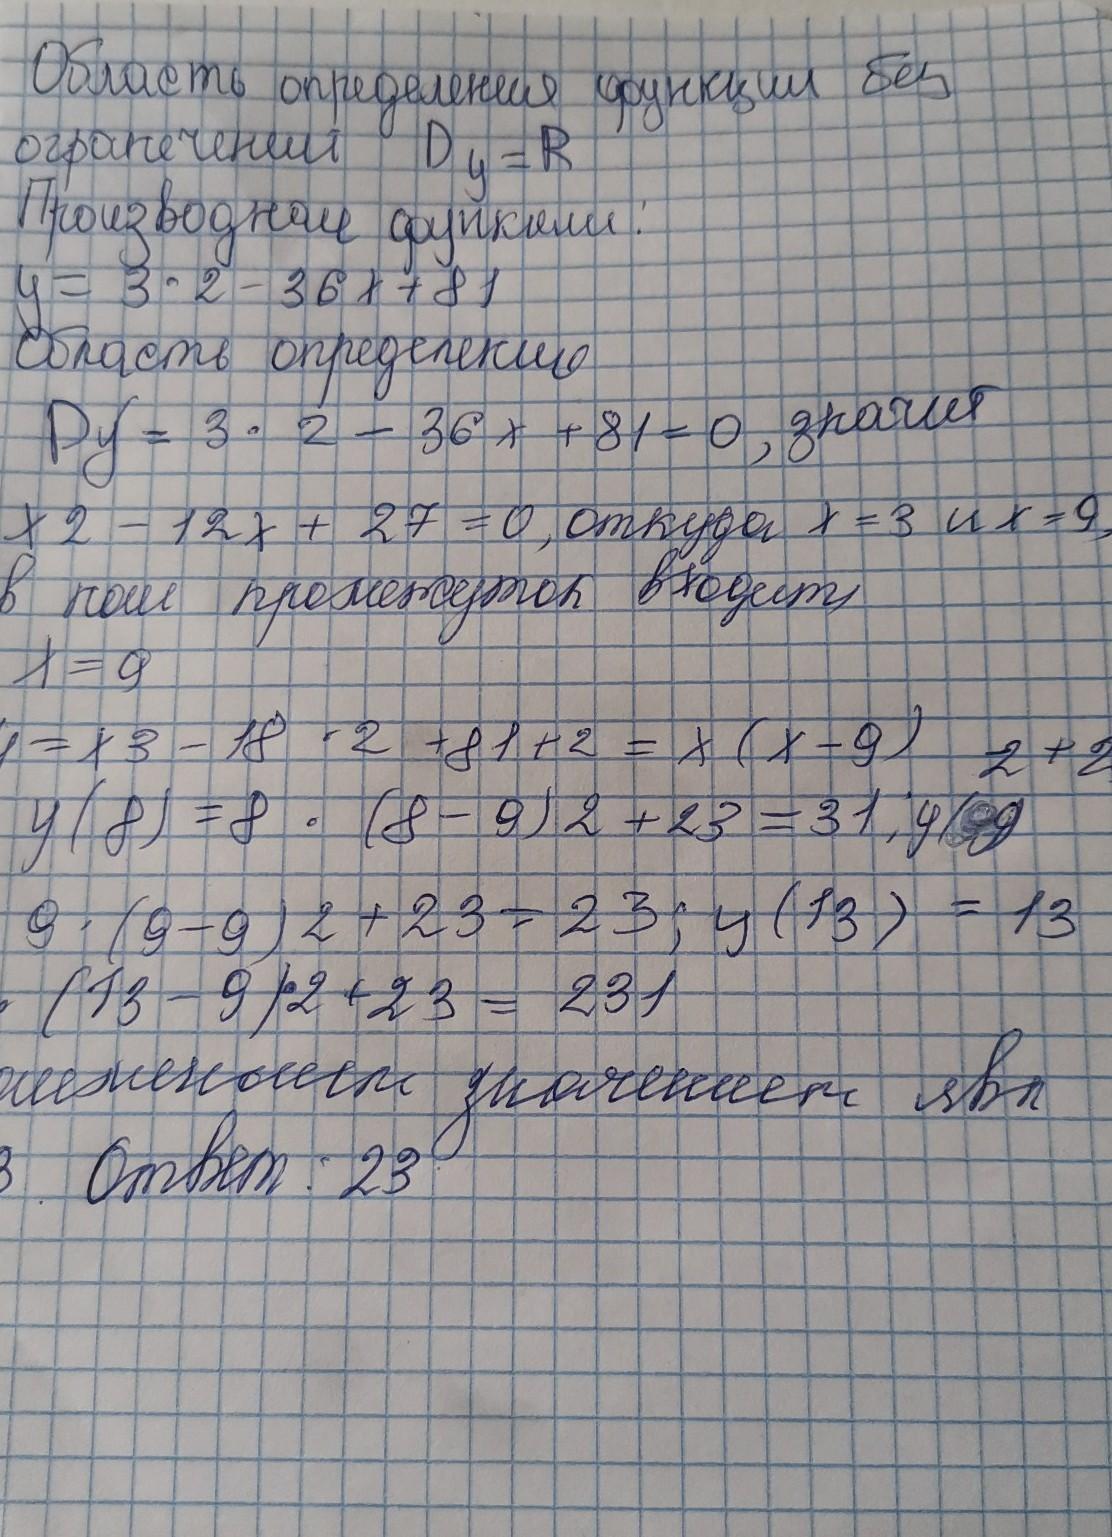 Область определения функции без
ограничений Dy=R
Производная функции:
y= 3·2-36x+81
Область определению
Dy = 3· 2 - 36x +81=0, значит
x2 - 12x + 27 =0, откуда x=3 и x=9,
в наш промежуток входит
x=9
y=x3-18·2 +81+2 = x(x-9) 2+2
y(8) =8 · (8-9)2+23=31; y(9
9·(9-9)2+23=23; y(13) = 13
· (13-9)·2+23= 231
значением явл
3. Ответ: 23